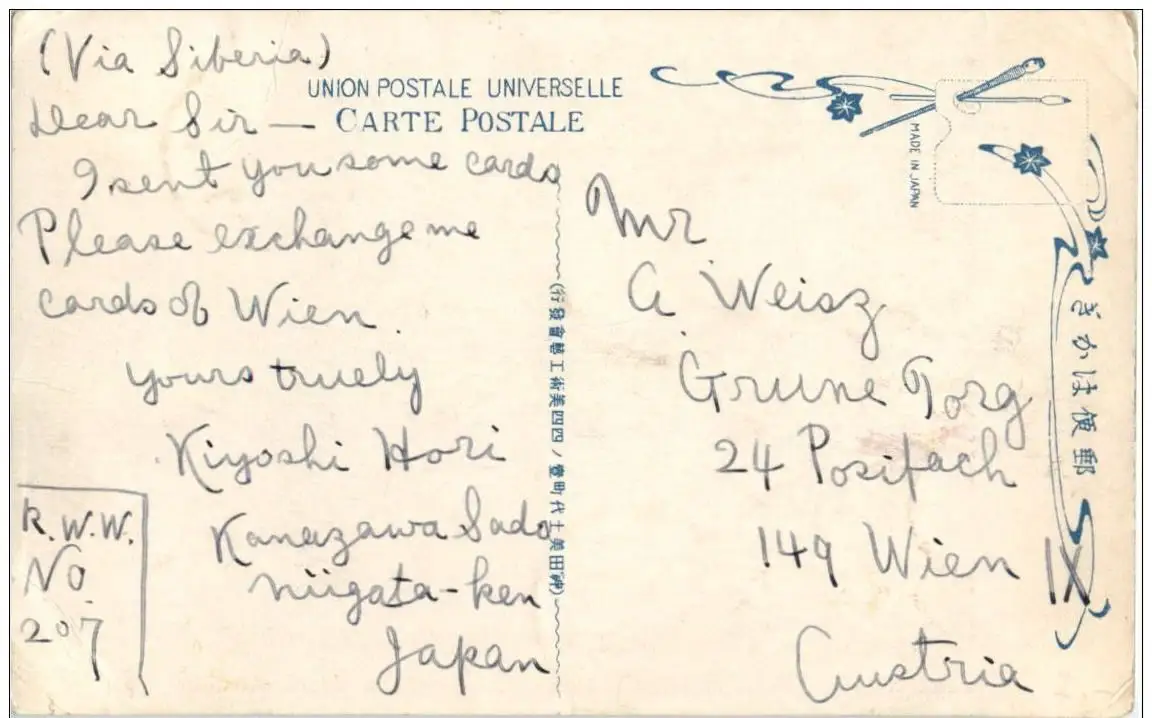 (Via Siberia)
UNION POSTALE UNIVERSELLE
CARTE POSTALE
Dear Sir —
I sent you some cards
Please exchange me
cards of Wien.
yours truely
Kiyoshi Hori
Kanazawa Sado
Niigata-ken
Japan
R.W.W.
No.
207
(神田美土代町壹ノ四四美術工藝會發行)
MADE IN JAPAN
Mr
A. Weisz
Grune Torg
24 Posifach
149 Wien IX
Austria
郵便はかき